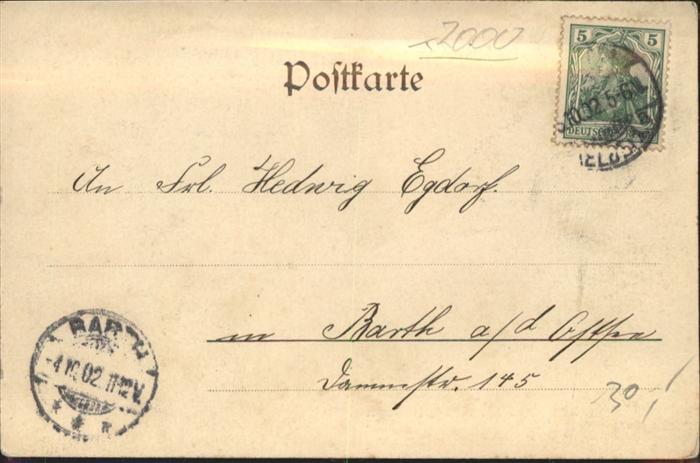 2000
Postkarte
5 5
DEUTSCHES
10.02. 5-6N.
An Frl. Hedwig Egdorf.
in Barth a/d Ostsee
Dammstr. 145
30,-
BARTH
-4.10.02. 11-12V.
* * *